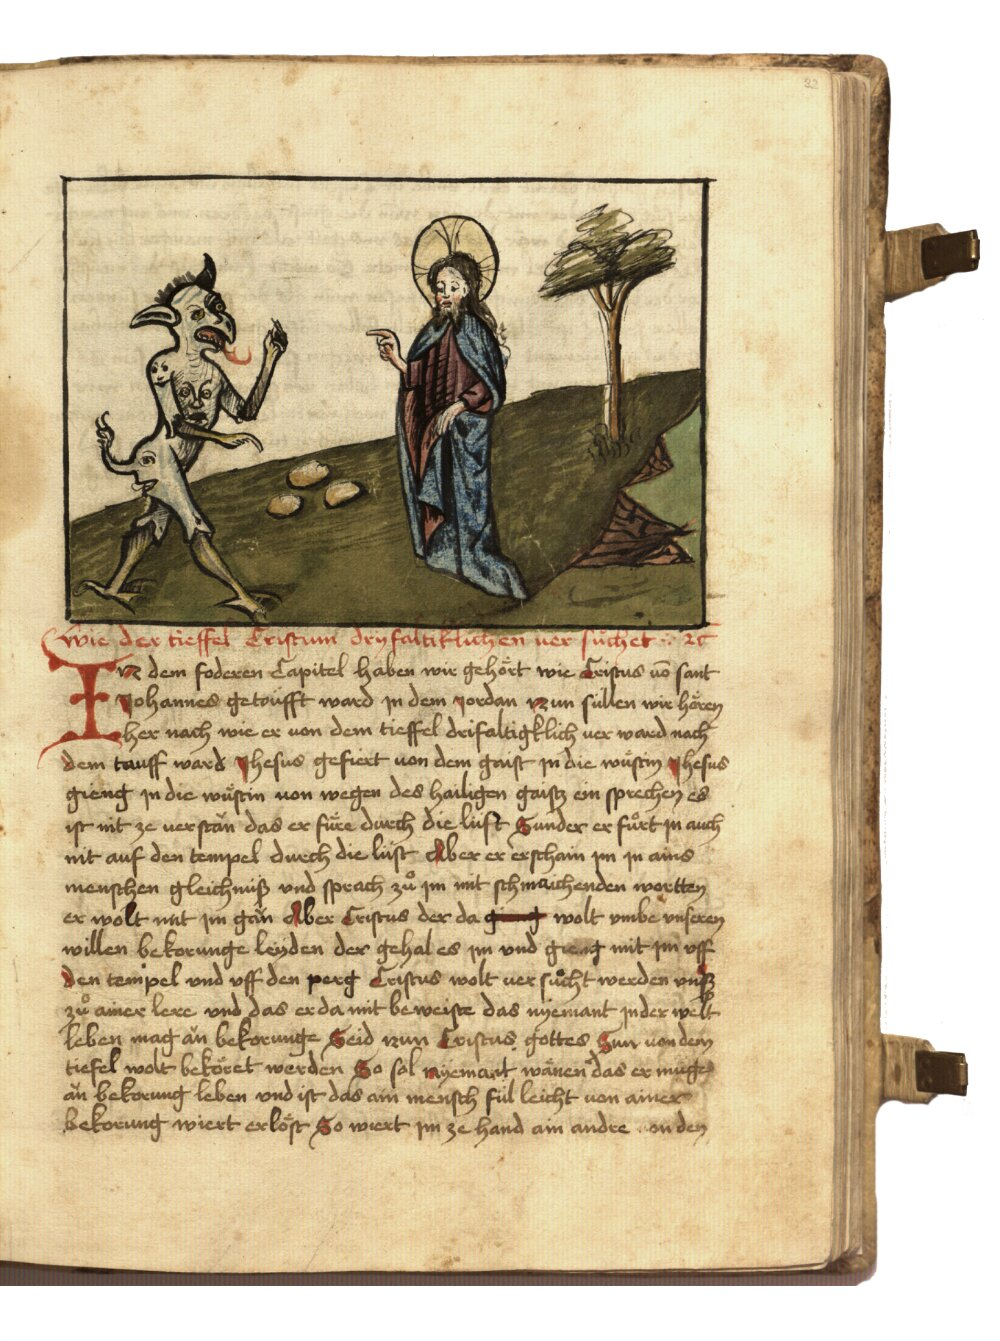 32
wie der tieffel Cristum dryfaltiklichen ver sůchet :· ꝛc
In dem foderen Capitel haben wir gehört wie Cristus vō sant
Johannes getoufft ward in dem Jordan nun süllen wir hören
her nach wie er von dem tieffel drifaltigklich ver ward nach
dem tauff ward Jhesus gefiert von dem gaist in die wüstin Jhesus
gieng in die wüstin von wegen des hailigen gaistz ein sprechen es
ist nit ze verstän das er füre durch die lüft Sunder er fůrt in auch
nit auf den tempel durch die lüft Aber er erschain im in ains
menschen gleichnuß vnd sprach zů im mit schmaichenden wortten
er wolt mit im gän Aber Cristus der da gieng wolt vmbe vnseren
willen bekorunge leyden der gehal es im vnd gieng mit im vff
den tempel vnd vff den perg Cristus wolt ver sůcht werden vnß
zů ainer lere vnd das er da mit beweiste das nyemant in der welt
leben mag än bekorunge Seid nun Cristus gottes Sun von dem
tiefel wolt beköret werden So sol nyemant wänen das er muge
än bekorung leben vnd ist das ain mensch fül leicht von ainer
bekorung wiert erlöst So wiert im ze hand ain andre on den